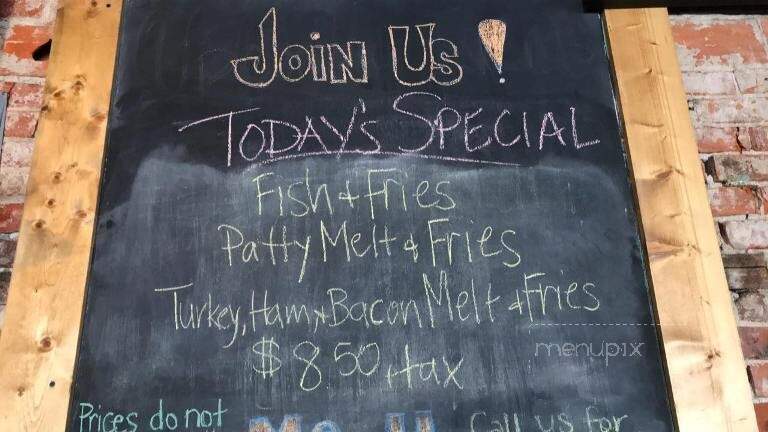 Join Us!
Today's Special
Fish & Fries
Patty Melt & Fries
Turkey, Ham, & Bacon Melt & Fries
menupix
$8.50 + tax
Prices do not
Call us for